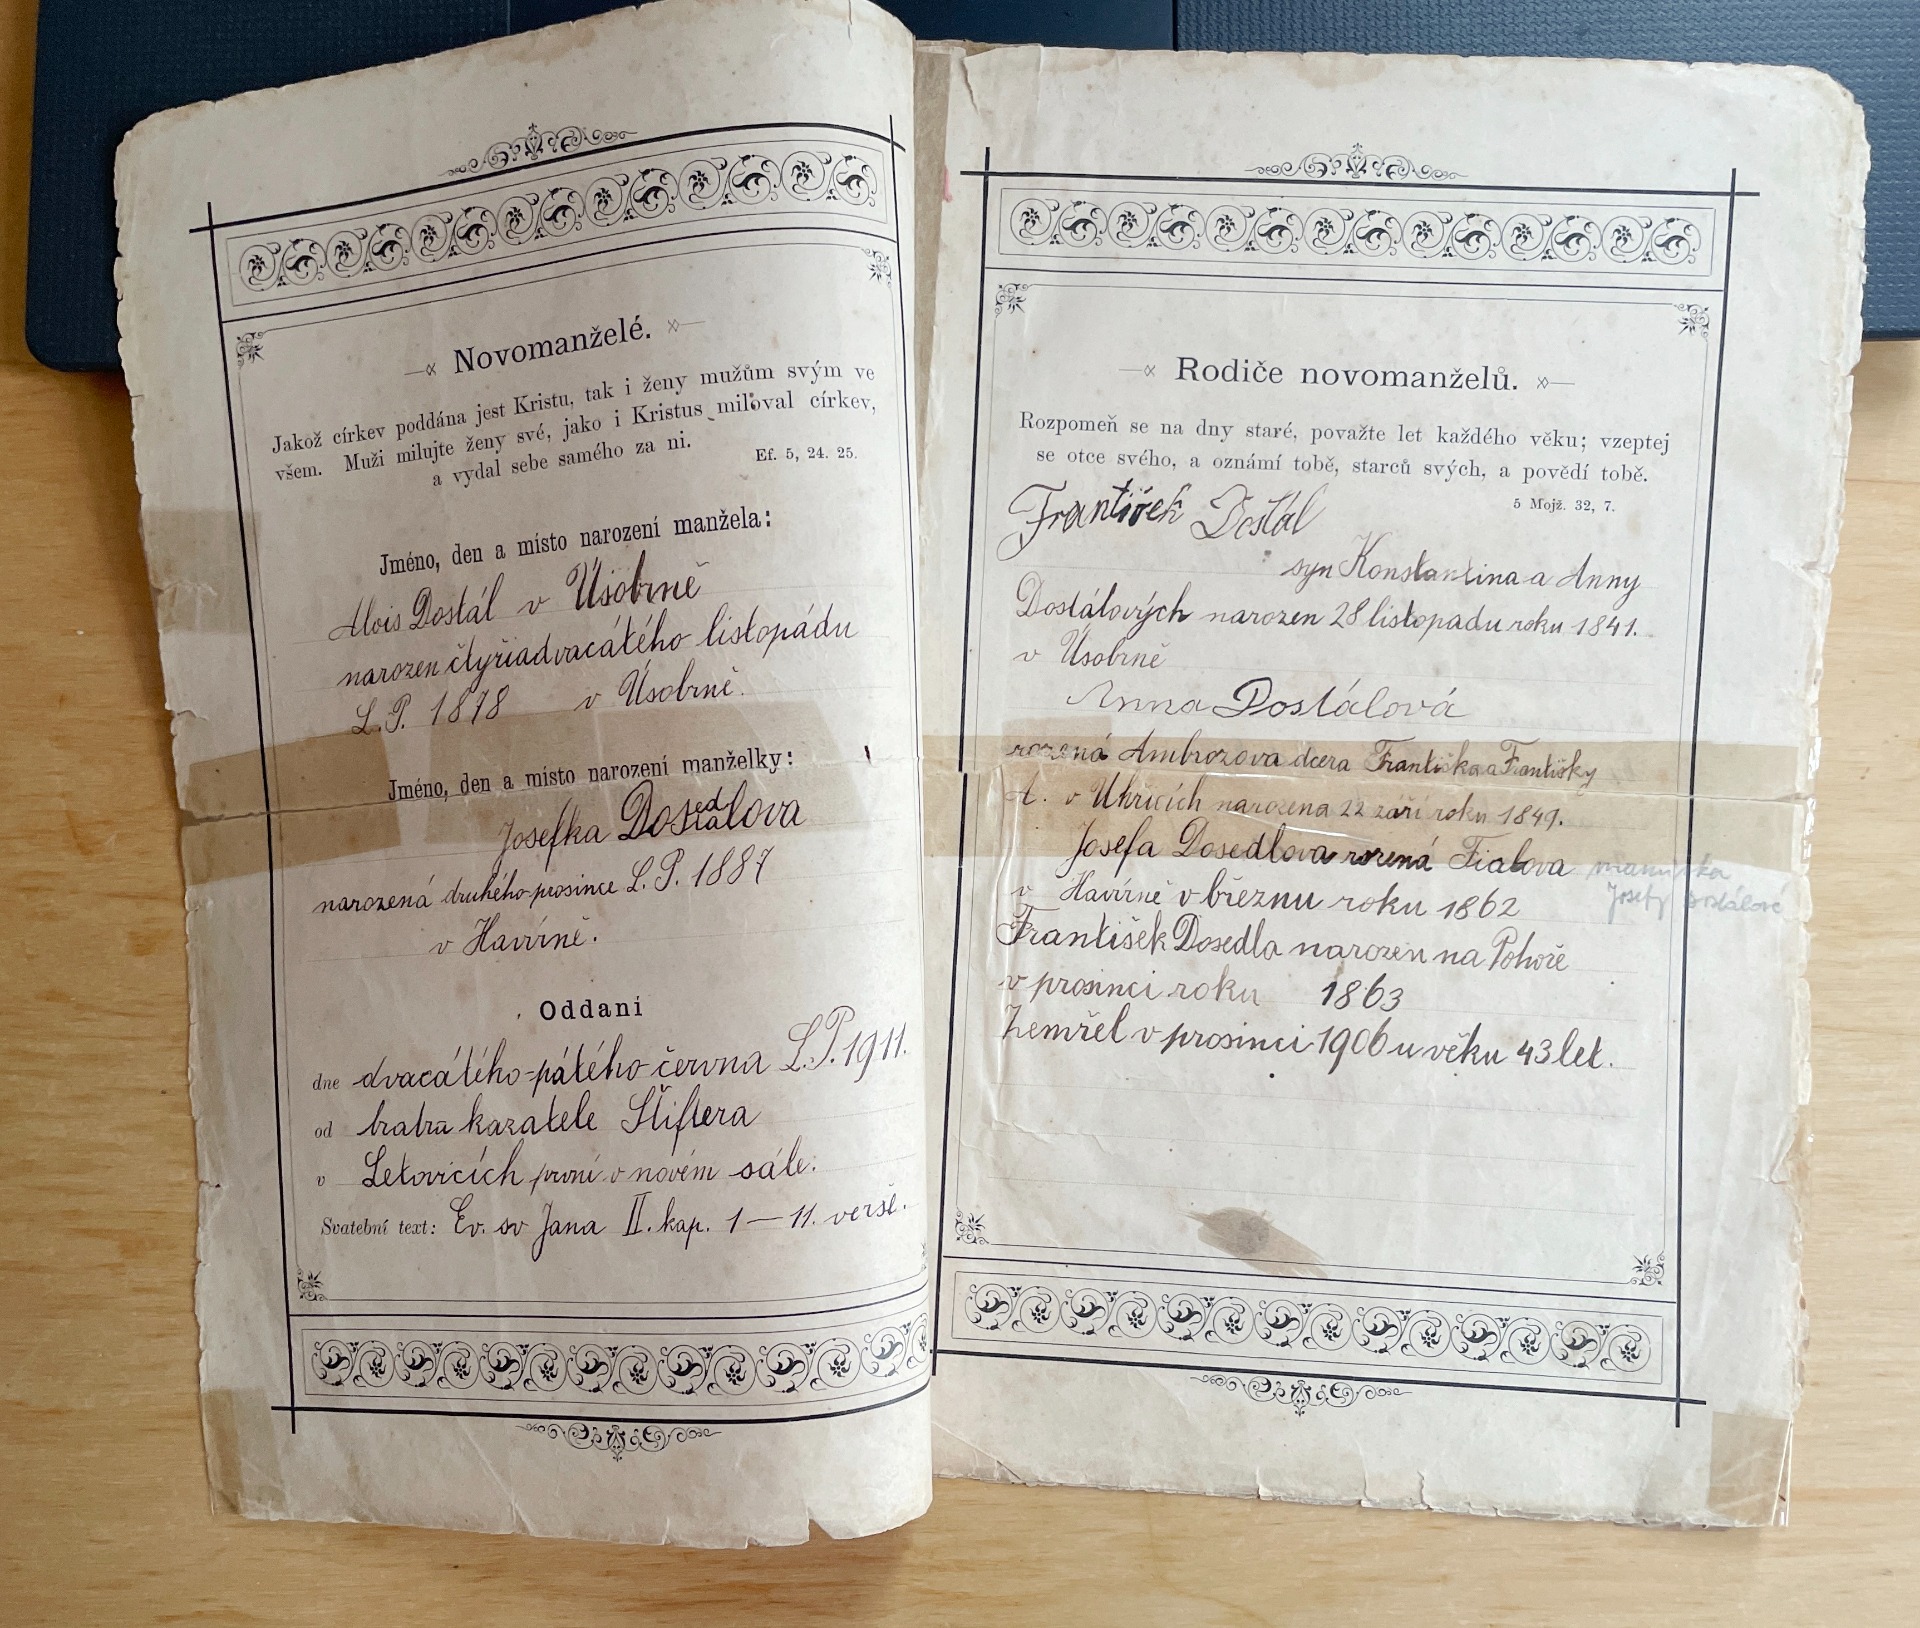 Novomanželé.
Jakož církev poddána jest Kristu, tak i ženy mužům svým ve
všem. Muži milujte ženy své, jako i Kristus miloval církev,
a vydal sebe samého za ni.
Ef. 5, 24. 25.
Jméno, den a místo narození manžela:
Alois Dostál v Úsobrně
narozen čtyřiadvacátého listopádu
L. P. 1878 v Úsobrně.
Jméno, den a místo narození manželky:
Josefka Dosedlova
narozená druhého prosince L. P. 1887
v Havírně.
Oddaní
dne dvacátého-pátého června L. P. 1911.
od bratra kazatele Štiftera
v Letovicích první v novém sále.
Svatební text: Ev. sv Jana II. kap. 1 — 11. verše.
Rodiče novomanželů.
Rozpomeň se na dny staré, považte let každého věku; vzeptej
se otce svého, a oznámí tobě, starců svých, a povědí tobě.
5 Mojž. 32, 7.
František Dostál
syn Konstantina a Anny
Dostálových narozen 28 listopadu roku 1841.
v Úsobrně
Anna Dostálová
rozená Ambrozova dcera Františka a Františky
A. v Uhřicích narozena 22 září roku 1849.
Josefa Dosedlova rozená Fialova maminka
Josefy Dostálové
v Havírně v březnu roku 1862
František Dosedla narozen na Pohoře
v prosinci roku 1863
Zemřel v prosinci 1906 u věku 43 let.